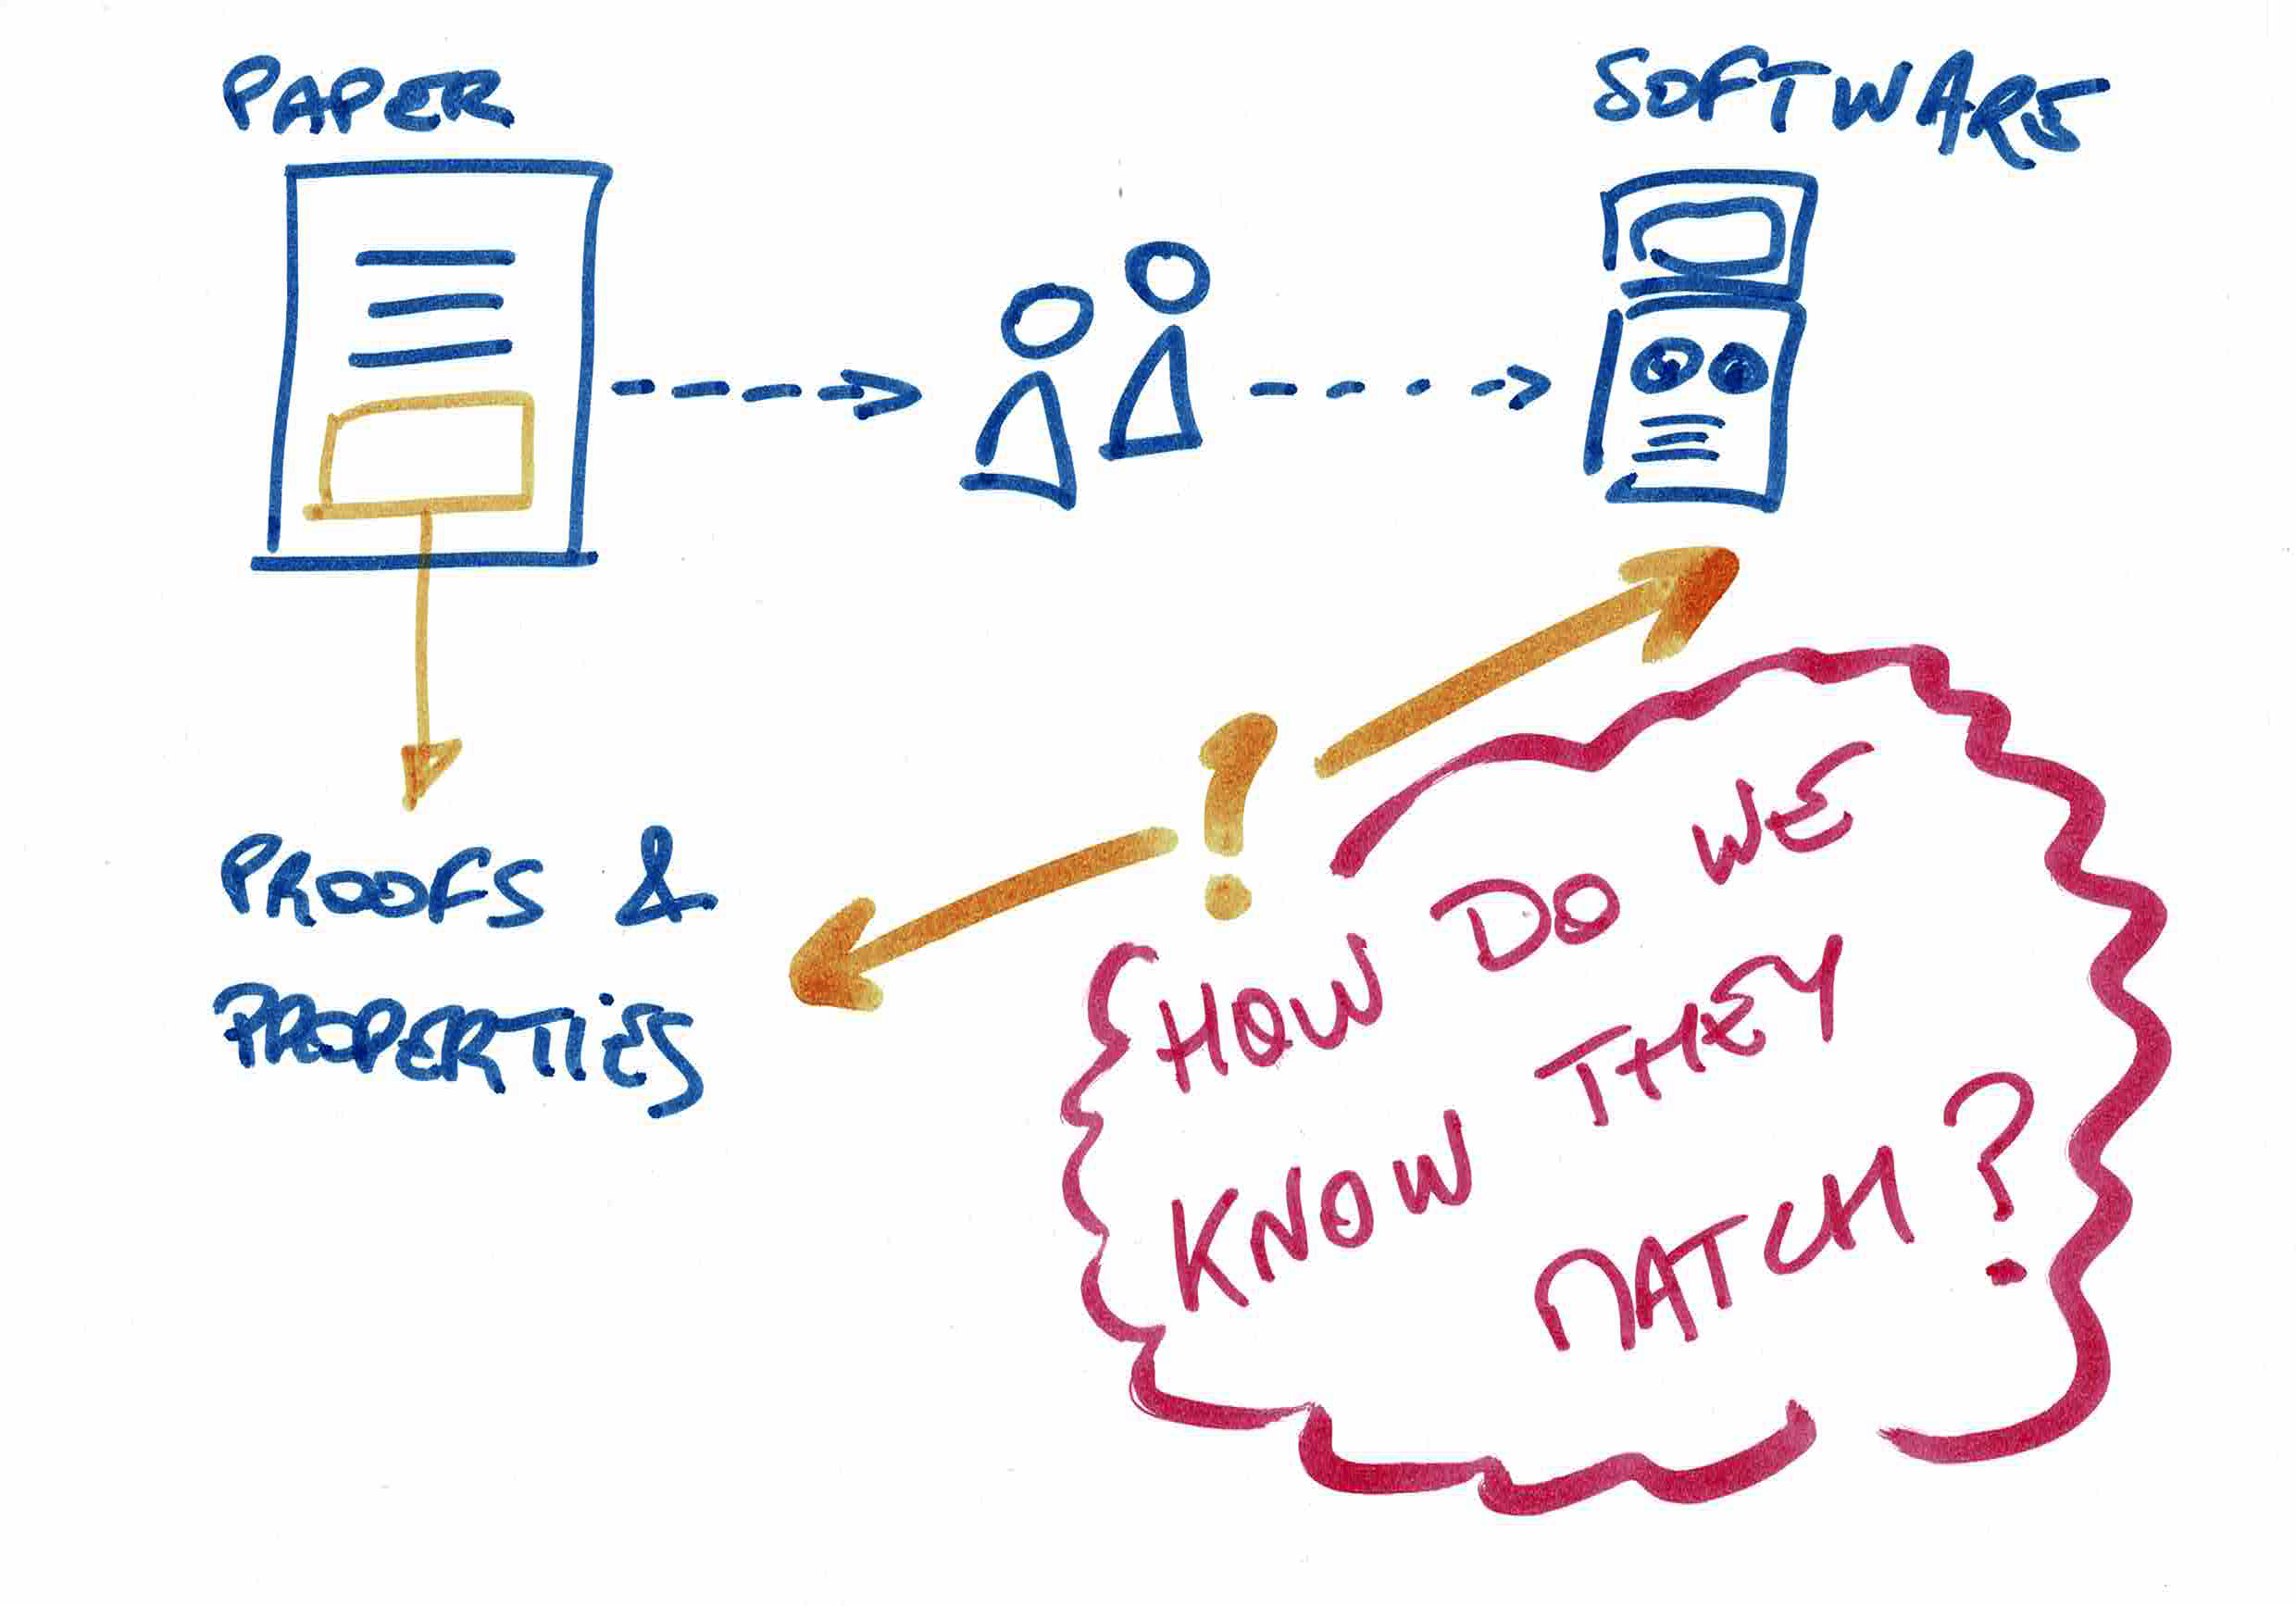 PAPER
SOFTWARE
PROOFS &
PROPERTIES
?
HOW DO WE
KNOW THEY
MATCH?